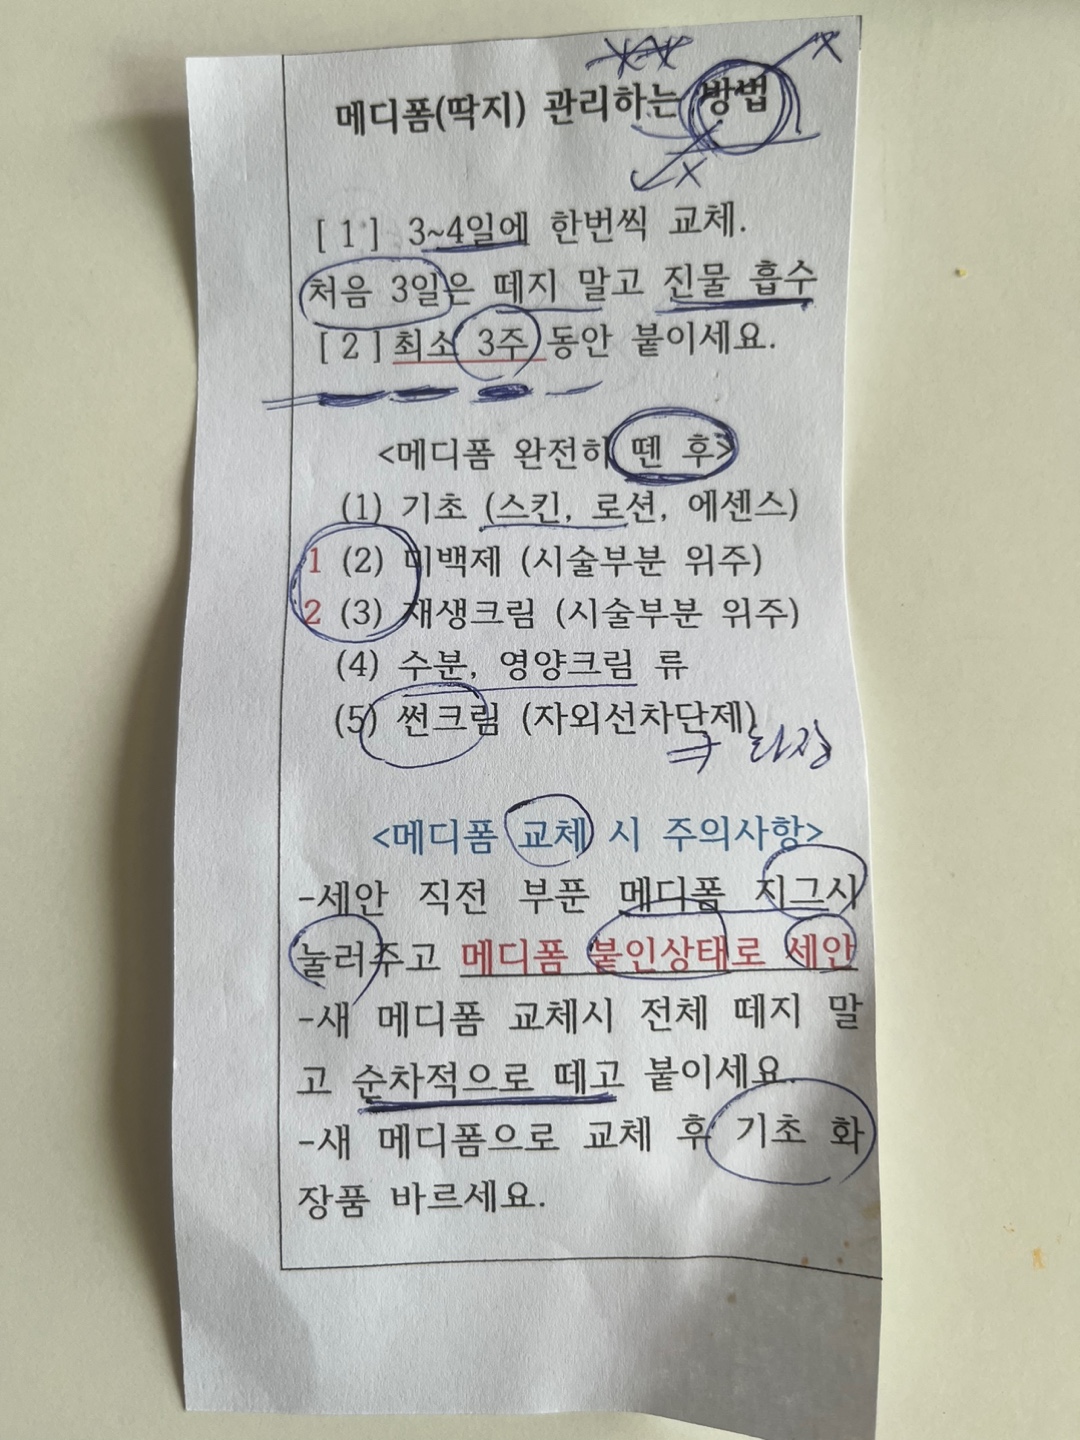 메디폼(딱지) 관리하는 방법
[1] 3~4일에 한번씩 교체.
처음 3일은 떼지 말고 진물 흡수
[2] 최소 3주 동안 붙이세요.
<메디폼 완전히 뗀 후>
(1) 기초 (스킨, 로션, 에센스)
1 (2) 미백제 (시술부분 위주)
2 (3) 재생크림 (시술부분 위주)
(4) 수분, 영양크림 류
(5) 썬크림 (자외선차단제)
⇒ 화장
<메디폼 교체 시 주의사항>
-세안 직전 부푼 메디폼 지그시
눌러주고 메디폼 붙인상태로 세안
-새 메디폼 교체시 전체 떼지 말
고 순차적으로 떼고 붙이세요.
-새 메디폼으로 교체 후 기초 화
장품 바르세요.